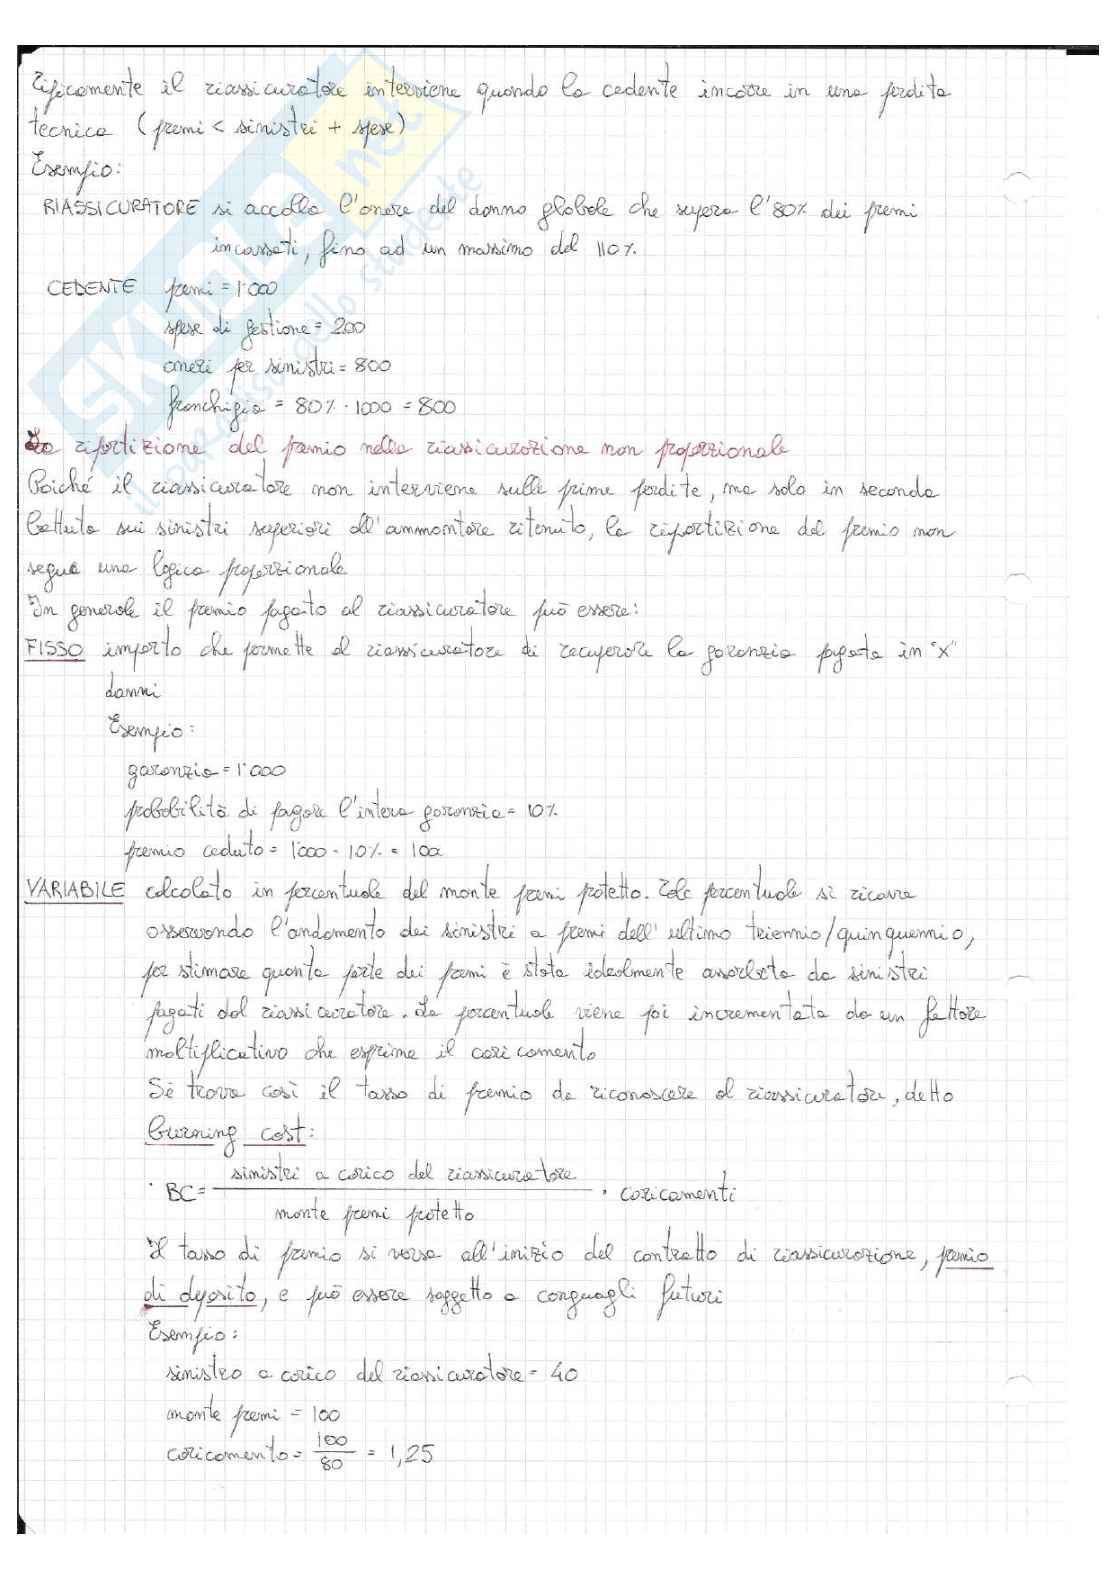 Tipicamente il riassicuratore interviene quando la cedente incorre in una perdita
tecnica (premi < sinistri + spese)
Esempio:
RIASSICURATORE si accolla l'onere del danno globale che supera l'80% dei premi
incassati, fino ad un massimo del 110%
CEDENTE premi = 1'000
spese di gestione = 200
oneri per sinistri = 800
franchigia = 80% · 1000 = 800
La ripartizione del premio nella riassicurazione non proporzionale
Poiché il riassicuratore non interviene sulle prime perdite, ma solo in seconda
battuta sui sinistri superiori all'ammontare ritenuto, la ripartizione del premio non
segue una logica proporzionale
In generale il premio pagato al riassicuratore può essere:
FISSO importo che permette al riassicuratore di recuperare la garanzia pagata in "x"
danni
Esempio:
garanzia = 1'000
probabilità di pagare l'intera garanzia = 10%
premio ceduto = 1'000 · 10% = 100
VARIABILE calcolato in percentuale del monte premi protetto. Tale percentuale si ricava
osservando l'andamento dei sinistri a premi dell'ultimo triennio/quinquennio,
per stimare quanta parte dei premi è stata idealmente assorbita da sinistri
pagati dal riassicuratore. La percentuale viene poi incrementata da un fattore
moltiplicativo che esprime il caricamento
Si trova così il tasso di premio da riconoscere al riassicuratore, detto
burning cost:
· BC = sinistri a carico del riassicuratore / monte premi protetto · caricamenti
Il tasso di premio si versa all'inizio del contratto di riassicurazione, premio
di deposito, e può essere soggetto a conguagli futuri
Esempio:
sinistro a carico del riassicuratore = 40
monte premi = 100
caricamento = 100 / 80 = 1,25
SKUOLA.net
il paradiso dello studente